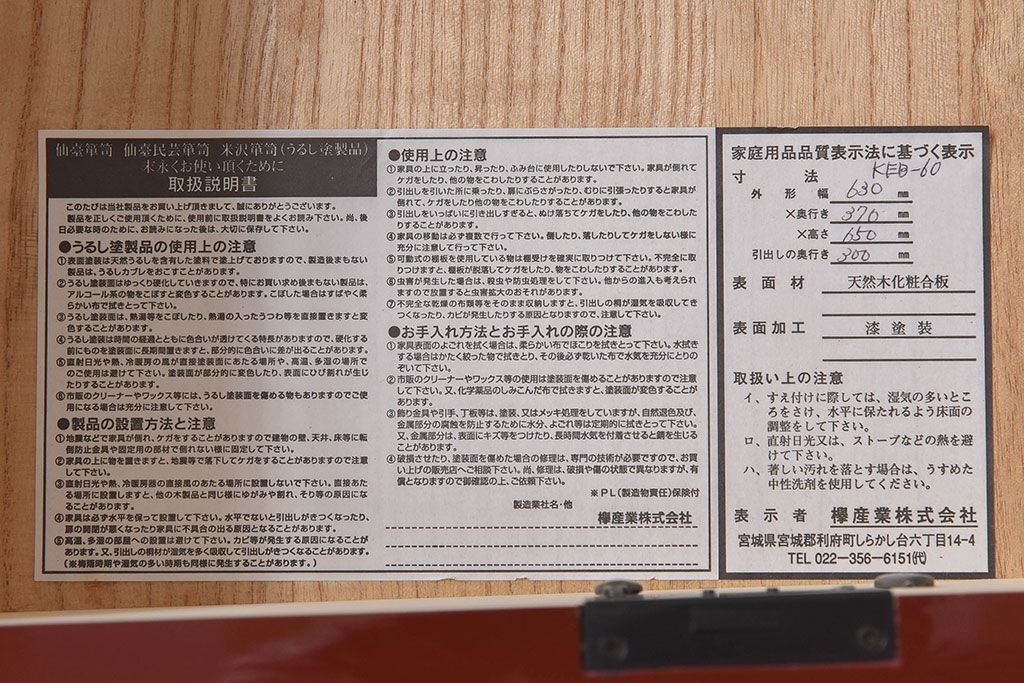 仙臺箪笥 仙臺民芸箪笥 米沢箪笥(うるし塗製品)
末永くお使い頂くために
取扱説明書
このたびは当社製品をお買い上げ頂きまして、誠にありがとうございます。
製品を正しくご使用頂くために、使用前に取扱説明書をよくお読み下さい。尚、後
日必要な時のために、お読みになった後は、大切に保存して下さい。
●うるし塗製品の使用上の注意
①表面塗装は天然うるしを含有した塗料で塗上げておりますので、製造後まもない
製品は、うるしカブレをおこすことがあります。
②うるし塗装面はゆっくり硬化していきますので、特にお買い求め後まもない製品は、
アルコール系の物をこぼすと変色することがあります。こぼした場合はすばやく柔
らかい布で拭きとって下さい。
③うるし塗装面は、熱湯等をこぼしたり、熱湯の入ったうつわ等を直接置きますと変
色することがあります。
④うるし塗装は時間の経過とともに色合いが透けてくる特長がありますので、硬化する
前にものを塗装面に長期間置きますと、部分的に色合いに差が出ることがあります。
⑤直射日光や熱、冷暖房の風が直接塗装面にあたる場所や、高温、多湿の場所で
のご使用は避けて下さい。塗装面が部分的に変色したり、表面にひび割れが生じ
たりすることがあります。
⑥市販のクリーナーやワックス等には、うるし塗装面を傷める物もありますのでご使
用になる場合は充分に注意して下さい。
●製品の設置方法と注意
①地震などで家具が倒れ、ケガをすることがありますので建物の壁、天井、床等に転
倒防止金具や固定用の部材で倒れない様に固定して下さい。
②家具の上に物を置きますと、地震等で落下してケガをすることがありますので注意
して下さい。
③直射日光や熱、冷暖房器の直接風のあたる場所に設置しないで下さい。直接あた
る場所に設置しますと、他の木製品と同じ様にゆがみや割れ、そり等の原因にな
ることがあります。
④家具は必ず水平を保って設置して下さい。水平でないと引出しがきつくなったり、
扉の開閉が悪くなったり家具に不具合の出る原因となることがあります。
⑤高温、多湿の部屋への設置は避けて下さい。カビ等が発生する原因になることが
あります。又、引出しの桐材が湿気を多く吸収して引出しがきつくなることがあります。
(※梅雨時期や湿気の多い時期も同様に発生することがあります。)
●使用上の注意
①家具の上に立ったり、昇ったり、ふみ台に使用したりしないで下さい。家具が倒れて
ケガをしたり、他の物をこわしたりすることがあります。
②引出しを引いた所に乗ったり、扉にぶらさがったり、むりに引張ったりすると家具が
倒れて、ケガをしたり他の物をこわしたりすることがあります。
③引出しをいっぱいに引き出しすぎると、ぬけ落ちてケガをしたり、他の物をこわした
りすることがあります。
④家具の移動は必ず複数で行って下さい。倒したり、落したりしてケガをしない様に
充分に注意して行って下さい。
⑤可動式の棚板を使用している物は棚受けを確実に取りつけて下さい。不完全に取
りつけますと、棚板が脱落してケガをしたり、物をこわしたりすることがあります。
⑥虫害が発生した場合は、殺虫や防虫処理をして下さい。他からの進入も考えられ
ますので放置すると虫害拡大のおそれがあります。
⑦不完全な乾燥の布類等をそのまま収納しますと、引出しの桐が湿気を吸収してき
つくなったり、カビが発生したりする原因となりますので、注意して下さい。
●お手入れ方法とお手入れの際の注意
①家具表面のよごれを拭く場合は、柔らかい布でほこりを拭きとって下さい。水拭き
する場合はかたく絞った物で拭きとり、その後必ず乾いた布で水気を充分にとりの
ぞいて下さい。
②市販のクリーナーやワックス等の使用は塗装面を傷めることがありますので注意
して下さい。又、化学薬品のしみこんだ布で拭きますと、塗装面が変色することが
あります。
③飾り金具や引手、丁板等は、塗装、又はメッキ処理をしていますが、自然退色及び、
金属部分の腐蝕を防止するために水分、よごれ等は定期的に拭きとって下さい。
又、金属部分は、表面にキズ等をつけたり、長時間水気を付着させると錆を生じる
ことがあります。
④破損させたり、塗装面を傷めた場合の修理は、専門の技術が必要ですので、お買
い上げの販売店へご相談下さい。尚、修理は、破損や傷の状態で異なりますが、有
償となりますので御確認の上、ご依頼下さい。
※PL(製造物責任)保険付
製造業社名・他
欅産業株式会社
家庭用品品質表示法に基づく表示
KEB-60
寸法
外形幅 630 ㎜
×奥行き 370 ㎜
×高さ 650 ㎜
引出しの奥行き 300 ㎜
表面材 天然木化粧合板
表面加工 漆塗装
取扱い上の注意
イ、すえ付けに際しては、湿気の多いとこ
ろをさけ、水平に保たれるよう床面の
調整をして下さい。
ロ、直射日光又は、ストーブなどの熱を避
けて下さい。
ハ、著しい汚れを落とす場合は、うすめた
中性洗剤を使用してください。
表示者 欅産業株式会社
宮城県宮城郡利府町しらかし台六丁目14-4
TEL 022-356-6151㈹